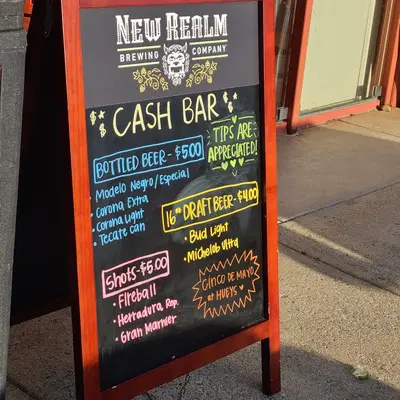 NEW REALM
BREWING COMPANY
$ CASH BAR $
TIPS ARE
APPRECIATED!
BOTTLED BEER - $5.00
• Modelo Negro/Especial
• Corona Extra
• Corona Light
• Tecate Can
16oz DRAFT BEER - $4.00
• Bud Light
• Michelob Ultra
Shots - $5.00
• Fireball
• Herradura, Rep.
• Gran Marnier
CINCO DE MAYO
AT HUEYS